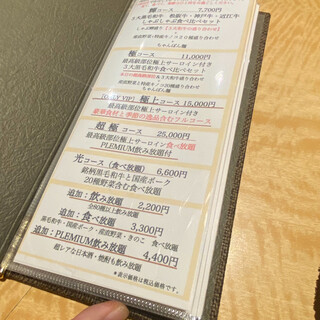 コース 7,700円
3大黒毛和牛 松阪牛・神戸牛・近江牛
しゃぶしゃぶ食べ比べセット
ちゃんぽん麺
極コース 11,000円
最高級部位極上サーロイン付き
3大黒毛和牛食べ比べセット
ちゃんぽん麺
極上コース 15,000円
豪華食材と季節の逸品含むフルコース
超極コース 25,000円
最高級部位極上サーロイン食べ放題
PLEMIUM飲み放題付
光コース(食べ放題) 6,600円
銘柄黒毛和牛と国産ポーク
20種野菜含む食べ放題
追加:飲み放題 2,200円
全80種以上飲み放題
追加:食べ放題 3,300円
黒毛和牛・国産ポーク・産直野菜・きのこ 食べ放題
追加:PLEMIUM飲み放題 4,400円
超レアな日本酒・焼酎も飲み放題
*表示価格は税込価格です。